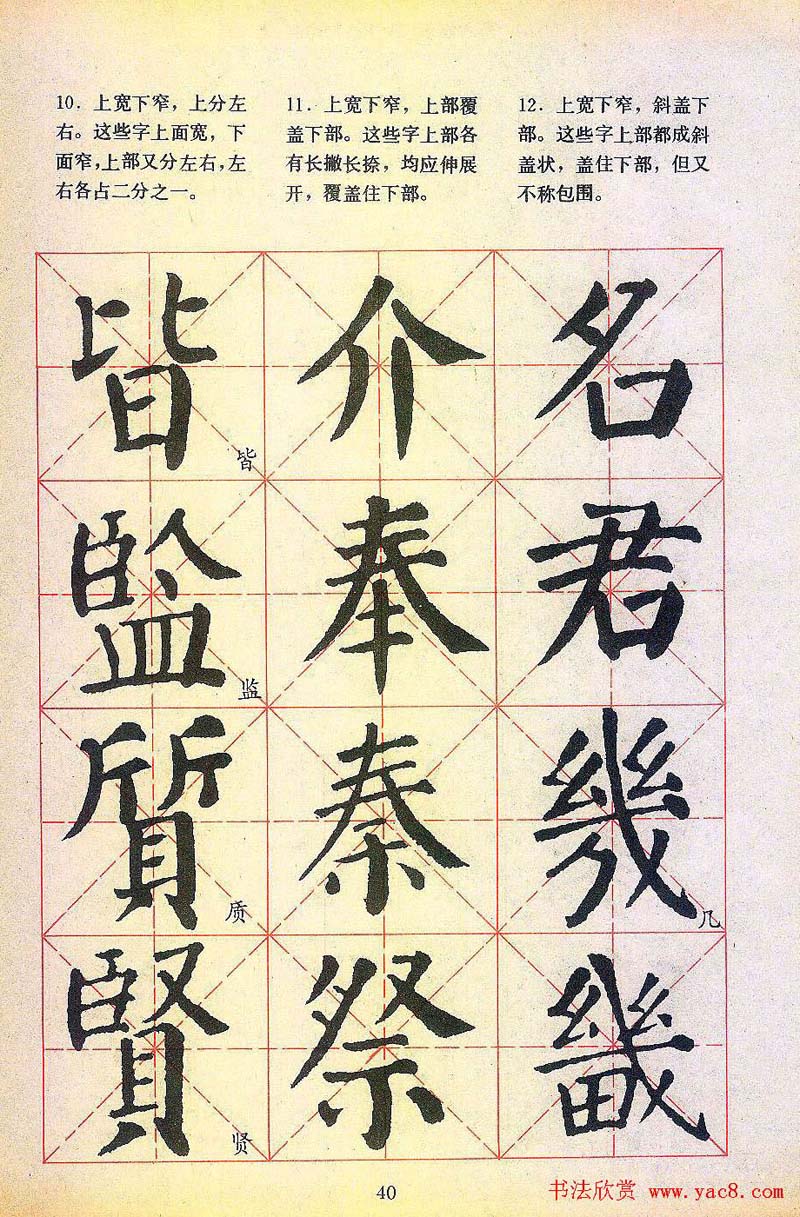 10．上宽下窄，上分左
右。这些字上面宽，下
面窄，上部又分左右，左
右各占二分之一。
11．上宽下窄，上部覆
盖下部。这些字上部各
有长撇长捺，均应伸展
开，覆盖住下部。
12．上宽下窄，斜盖下
部。这些字上部都成斜
盖状，盖住下部，但又
不称包围。
皆
皆
監
监
質
质
賢
贤
介
奉
秦
祭
名
君
幾
几
畿
40
书法欣赏 www.yac8.com